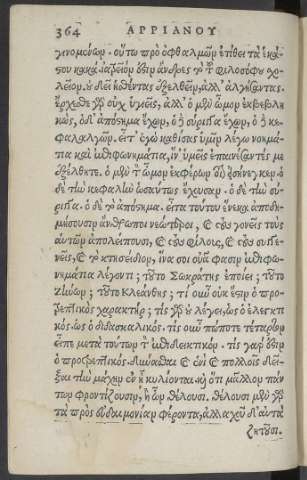 364 ΑΡΡΙΑΝΟΥ
γινομένων. οὕτω πρὸ ὀφθαλμῶν ἐτίθει τὰ ἑκά-
στου κακά. ἰατρεῖόν ἐστιν ἄνδρες τὸ τοῦ φιλοσόφου χο-
λεῖον. οὐ δεῖ ἡσθέντας ἐξελθεῖν, ἀλλ' ἀλγήσαντας.
ἔρχεσθε γὰρ οὐχ ὑγιεῖς, ἀλλ' ὁ μὲν ὦμον ἐκβεβλη-
κώς, ὁ δ' ἀπόστημα ἔχων, ὁ ἢ σύριγγα ἔχων, ὁ ἢ κε-
φαλαλγῶν. εἶτ' ἐγὼ καθίσας ὑμῖν λέγω νοημά-
τια καὶ ἐπιφωνημάτια, ἵν' ὑμεῖς ἐπαινέσαντές με
ἐξέλθητε. ὁ μὲν τὸν ὦμον ἐκφέρων οἷον εἰσήνεγκεν. ὁ
δὲ τὴν κεφαλὴν ὡσαύτως ἔχουσαν. ὁ δὲ τὴν σύ-
ριγγα. ὁ δὲ τὸ ἀπόστημα. εἶτα τούτου ἕνεκα ἀποδη-
μήσουσιν ἄνθρωποι νεώτεροι, καὶ τοὺς γονεῖς τοὺς
αὐτῶν ἀπολείπουσι, καὶ τοὺς φίλους, καὶ τοὺς συγγε-
νεῖς, καὶ τὸ κτησείδιον, ἵνα σοι οὐᾶ φασιν ἐπιφω-
νημάτια λέγοντι; τοῦτο Σωκράτης ἐποίει; τοῦτο
Ζήνων; τοῦτο Κλεάνθης; τί οὖν οὐκ ἔστιν ὁ προ-
τρεπτικὸς χαρακτήρ; τίς γὰρ οὐ λέγει, ὡς ὁ ἐλεγκτι
κός. ὡς ὁ διδασκαλικός. τίς οὖν πώποτε τέταρτον
εἶπε μετὰ τούτων τὸν ἐπιδεικτικόν. τίς γάρ ἐστιν
ὁ προτρεπτικός. δύνασθαι καὶ ἑνὶ καὶ πολλοῖς δεῖ-
ξαι τὴν μάχην ἐν ᾗ κυλίονται. καὶ ὅτι μᾶλλον πάν
των φροντίζουσιν, ἢ ὧν θέλουσι. θέλουσι μὲν γὰρ
τὰ πρὸς εὐδαιμονίαν φέροντα, ἀλλαχοῦ δ' αὐτὰ
ζητοῦσι.